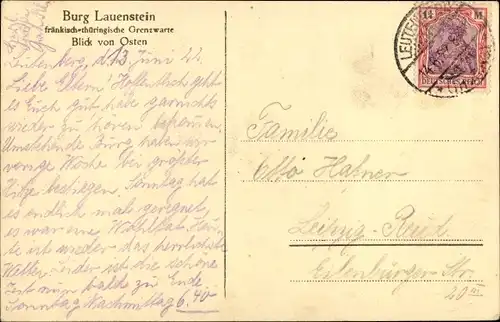 Burg Lauenstein
fränkisch-thüringische Grenzwarte
Blick von Osten
Leutenberg, d. 13. Juni 22.
Liebe Eltern! Hoffentlich geht
es Euch gut, habe garnichts
wieder zu hören bekommen.
Umstehende Burg haben wir
vorige Woche bei großer
Hitze bestiegen. Sonntag hat
es endlich mal geregnet,
es war eine Wohltat. Heu-
te ist wieder das herrlichste
Wetter. Leider ist die schöne
Zeit nun bald zu Ende.
Sonntag Nachmittag 6.40
Familie
Otto Hafner
Leipzig-Reud.
Eilenburger Str.
20 III
1¼ M
DEUTSCHES REICH
LEUTENBERG